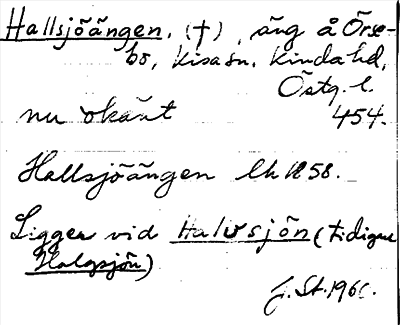 Hallsjöängen. (†), äng å Örse-
bo, Kisa sn. Kinda hd,
Östg. l.
nu okänt 454.
Hallsjöängen lk 1858.
Ligger vid Halvsjön (tidigare
Halgsjön)
J. St. 1961.